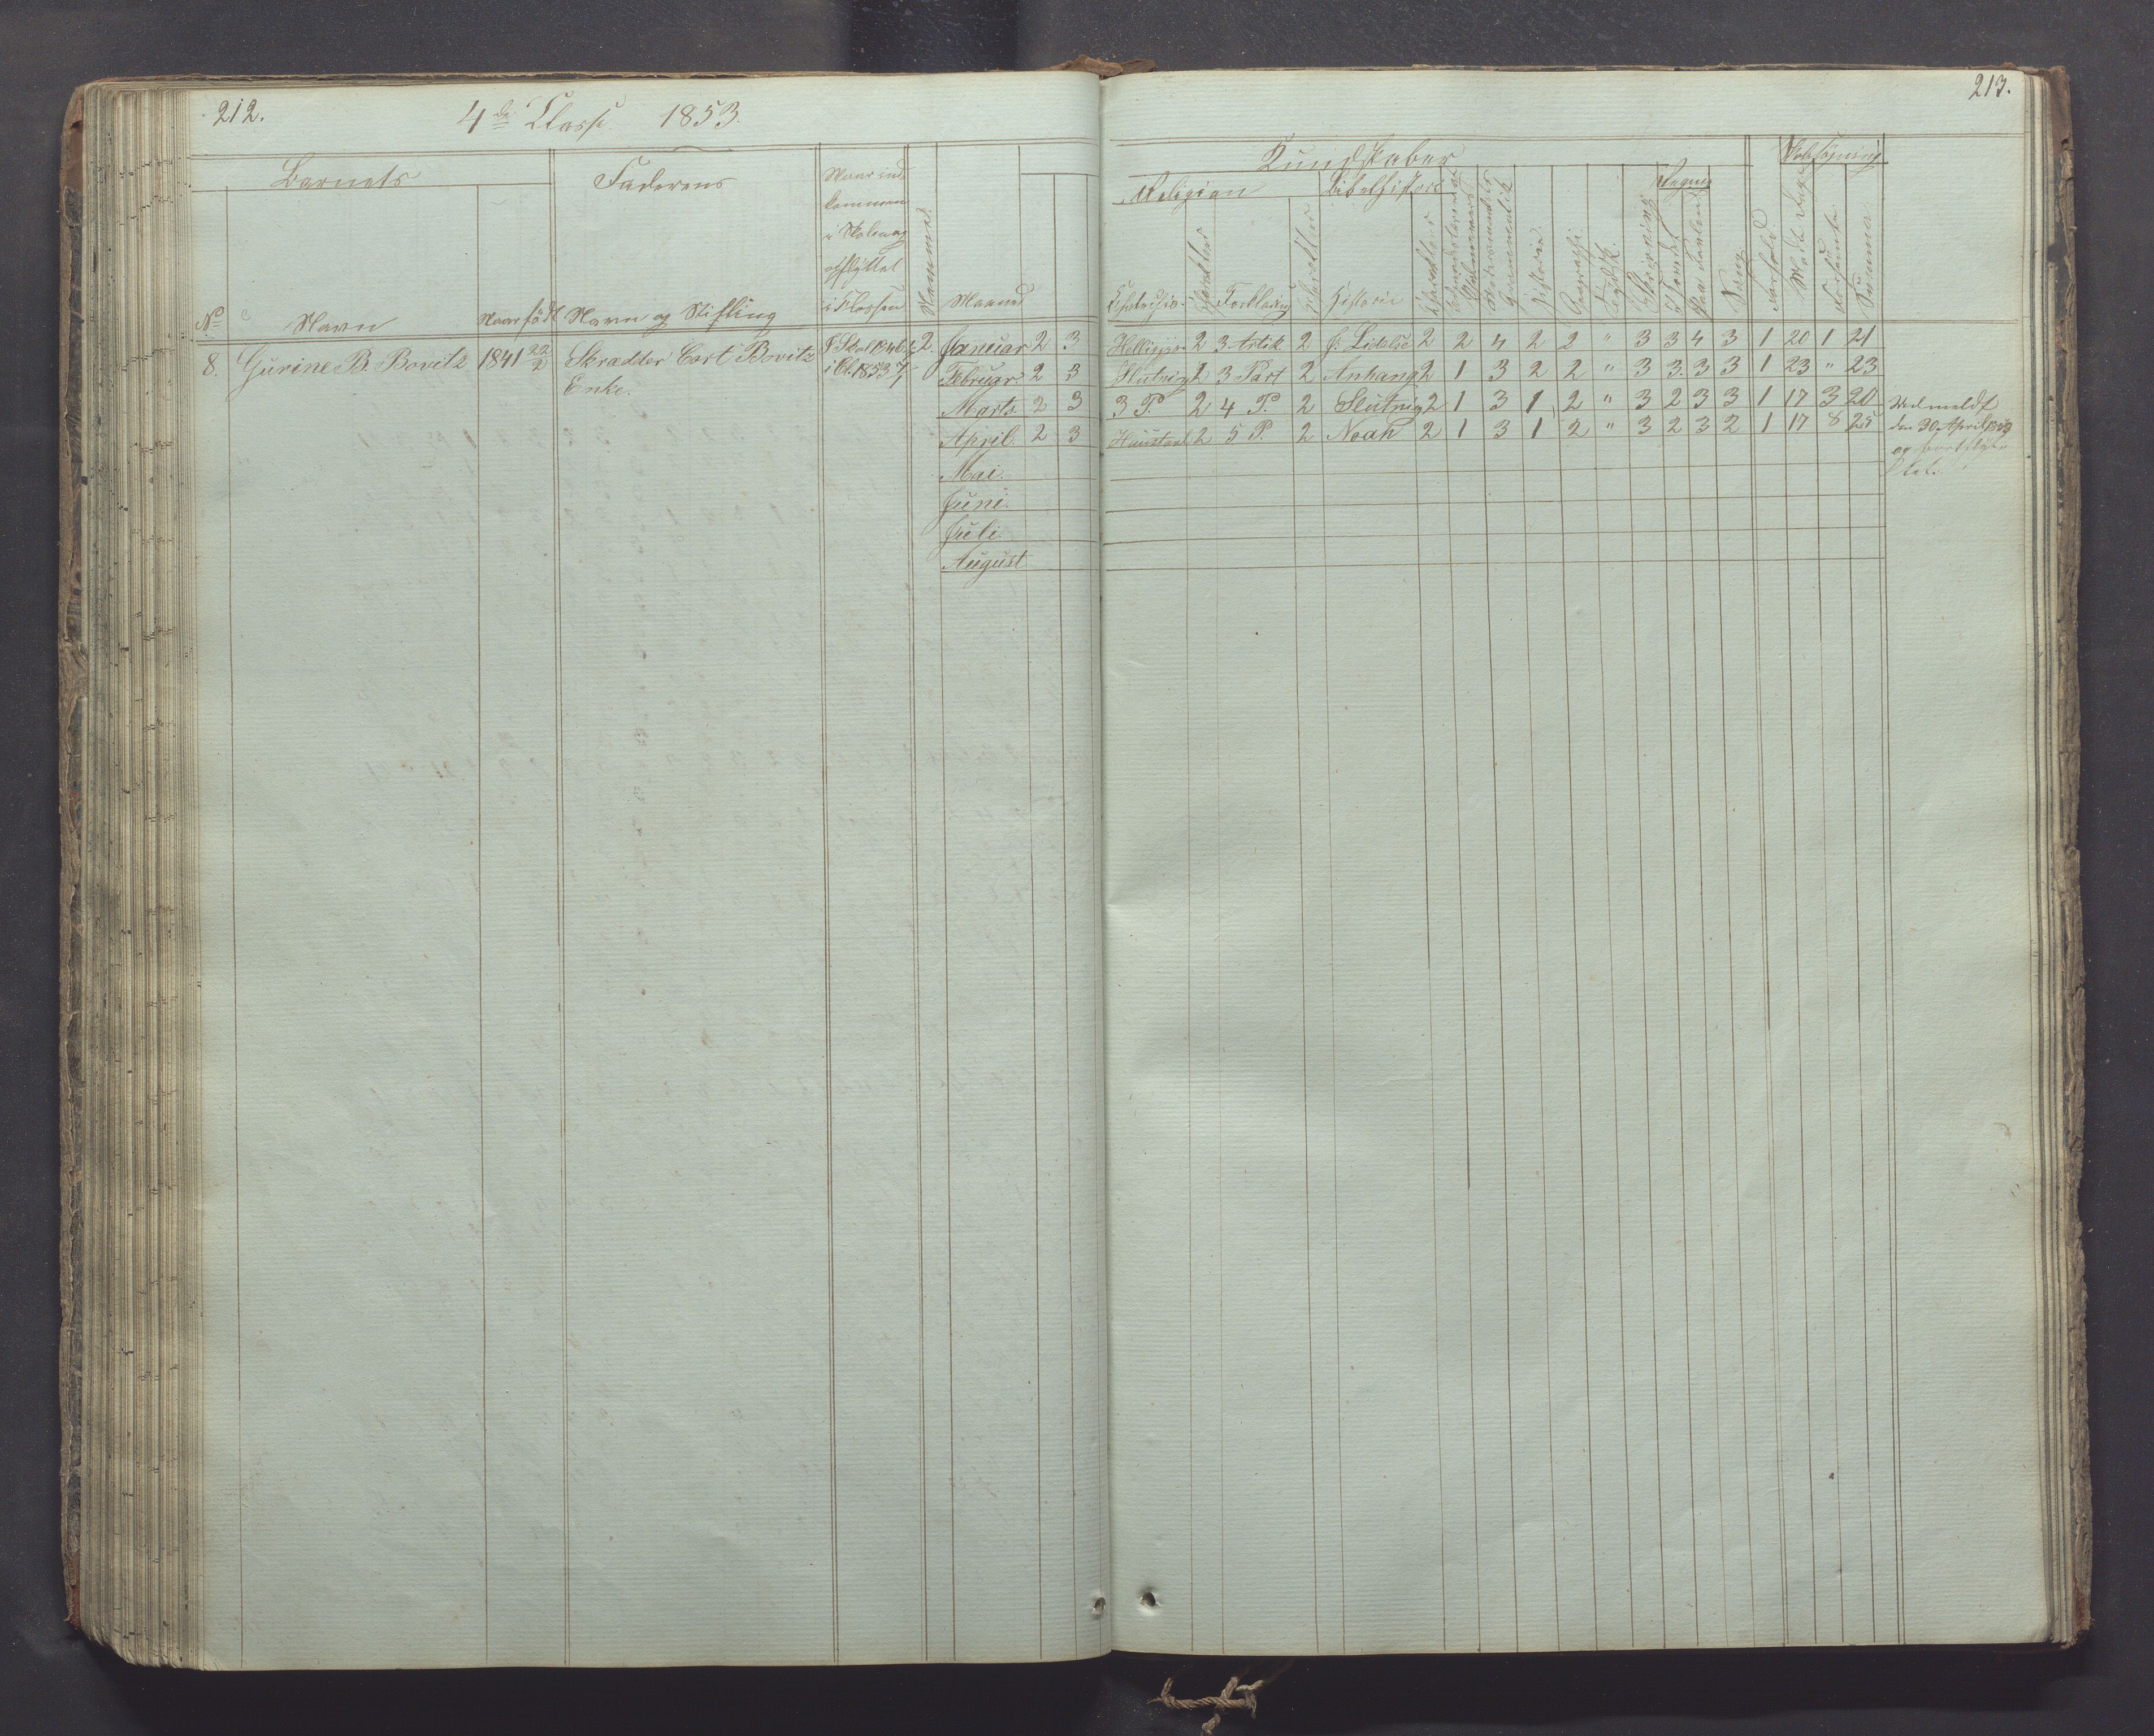 212.
4de Classe 1853.
Barnets
Faderens
No
Navn
Naar født
Navn og Stilling
Naar ind-
kommen
i Skolen og
opflyttet
i Classen
Maaned
8. Gurine B. Bovitz 1841 22/2 Skrædder Carl Bovitz
Enke.
i Cl. 1853 7/1
2
Januar 2 3
Februar 2 3
Marts 2 3
April 2 3
Mai.
Juni.
Juli.
August
213.
Kundskaber
Skolesøgning
Religion
Bibelhistorie
Regning
Forklaring
Historie
Sang
Forhold
Mødte Dage
Forsømte
Summa
2 3 Artik. 2 2 2 4 2 2 " 3 3 4 3 1 20 1 21
Slutnig 2 3 Part 2 Anhang 2 1 3 2 2 " 3 3 3 3 1 23 " 23
3 P. 2 4 P. 2 Slutnig 2 1 3 1 2 " 3 2 3 3 1 17 3 20
2 5 P. 2 Noah 2 1 3 1 2 " 3 2 3 2 1 17 8 25
Udmeldt
den 30 April 1853
og bortflyt-
tet.